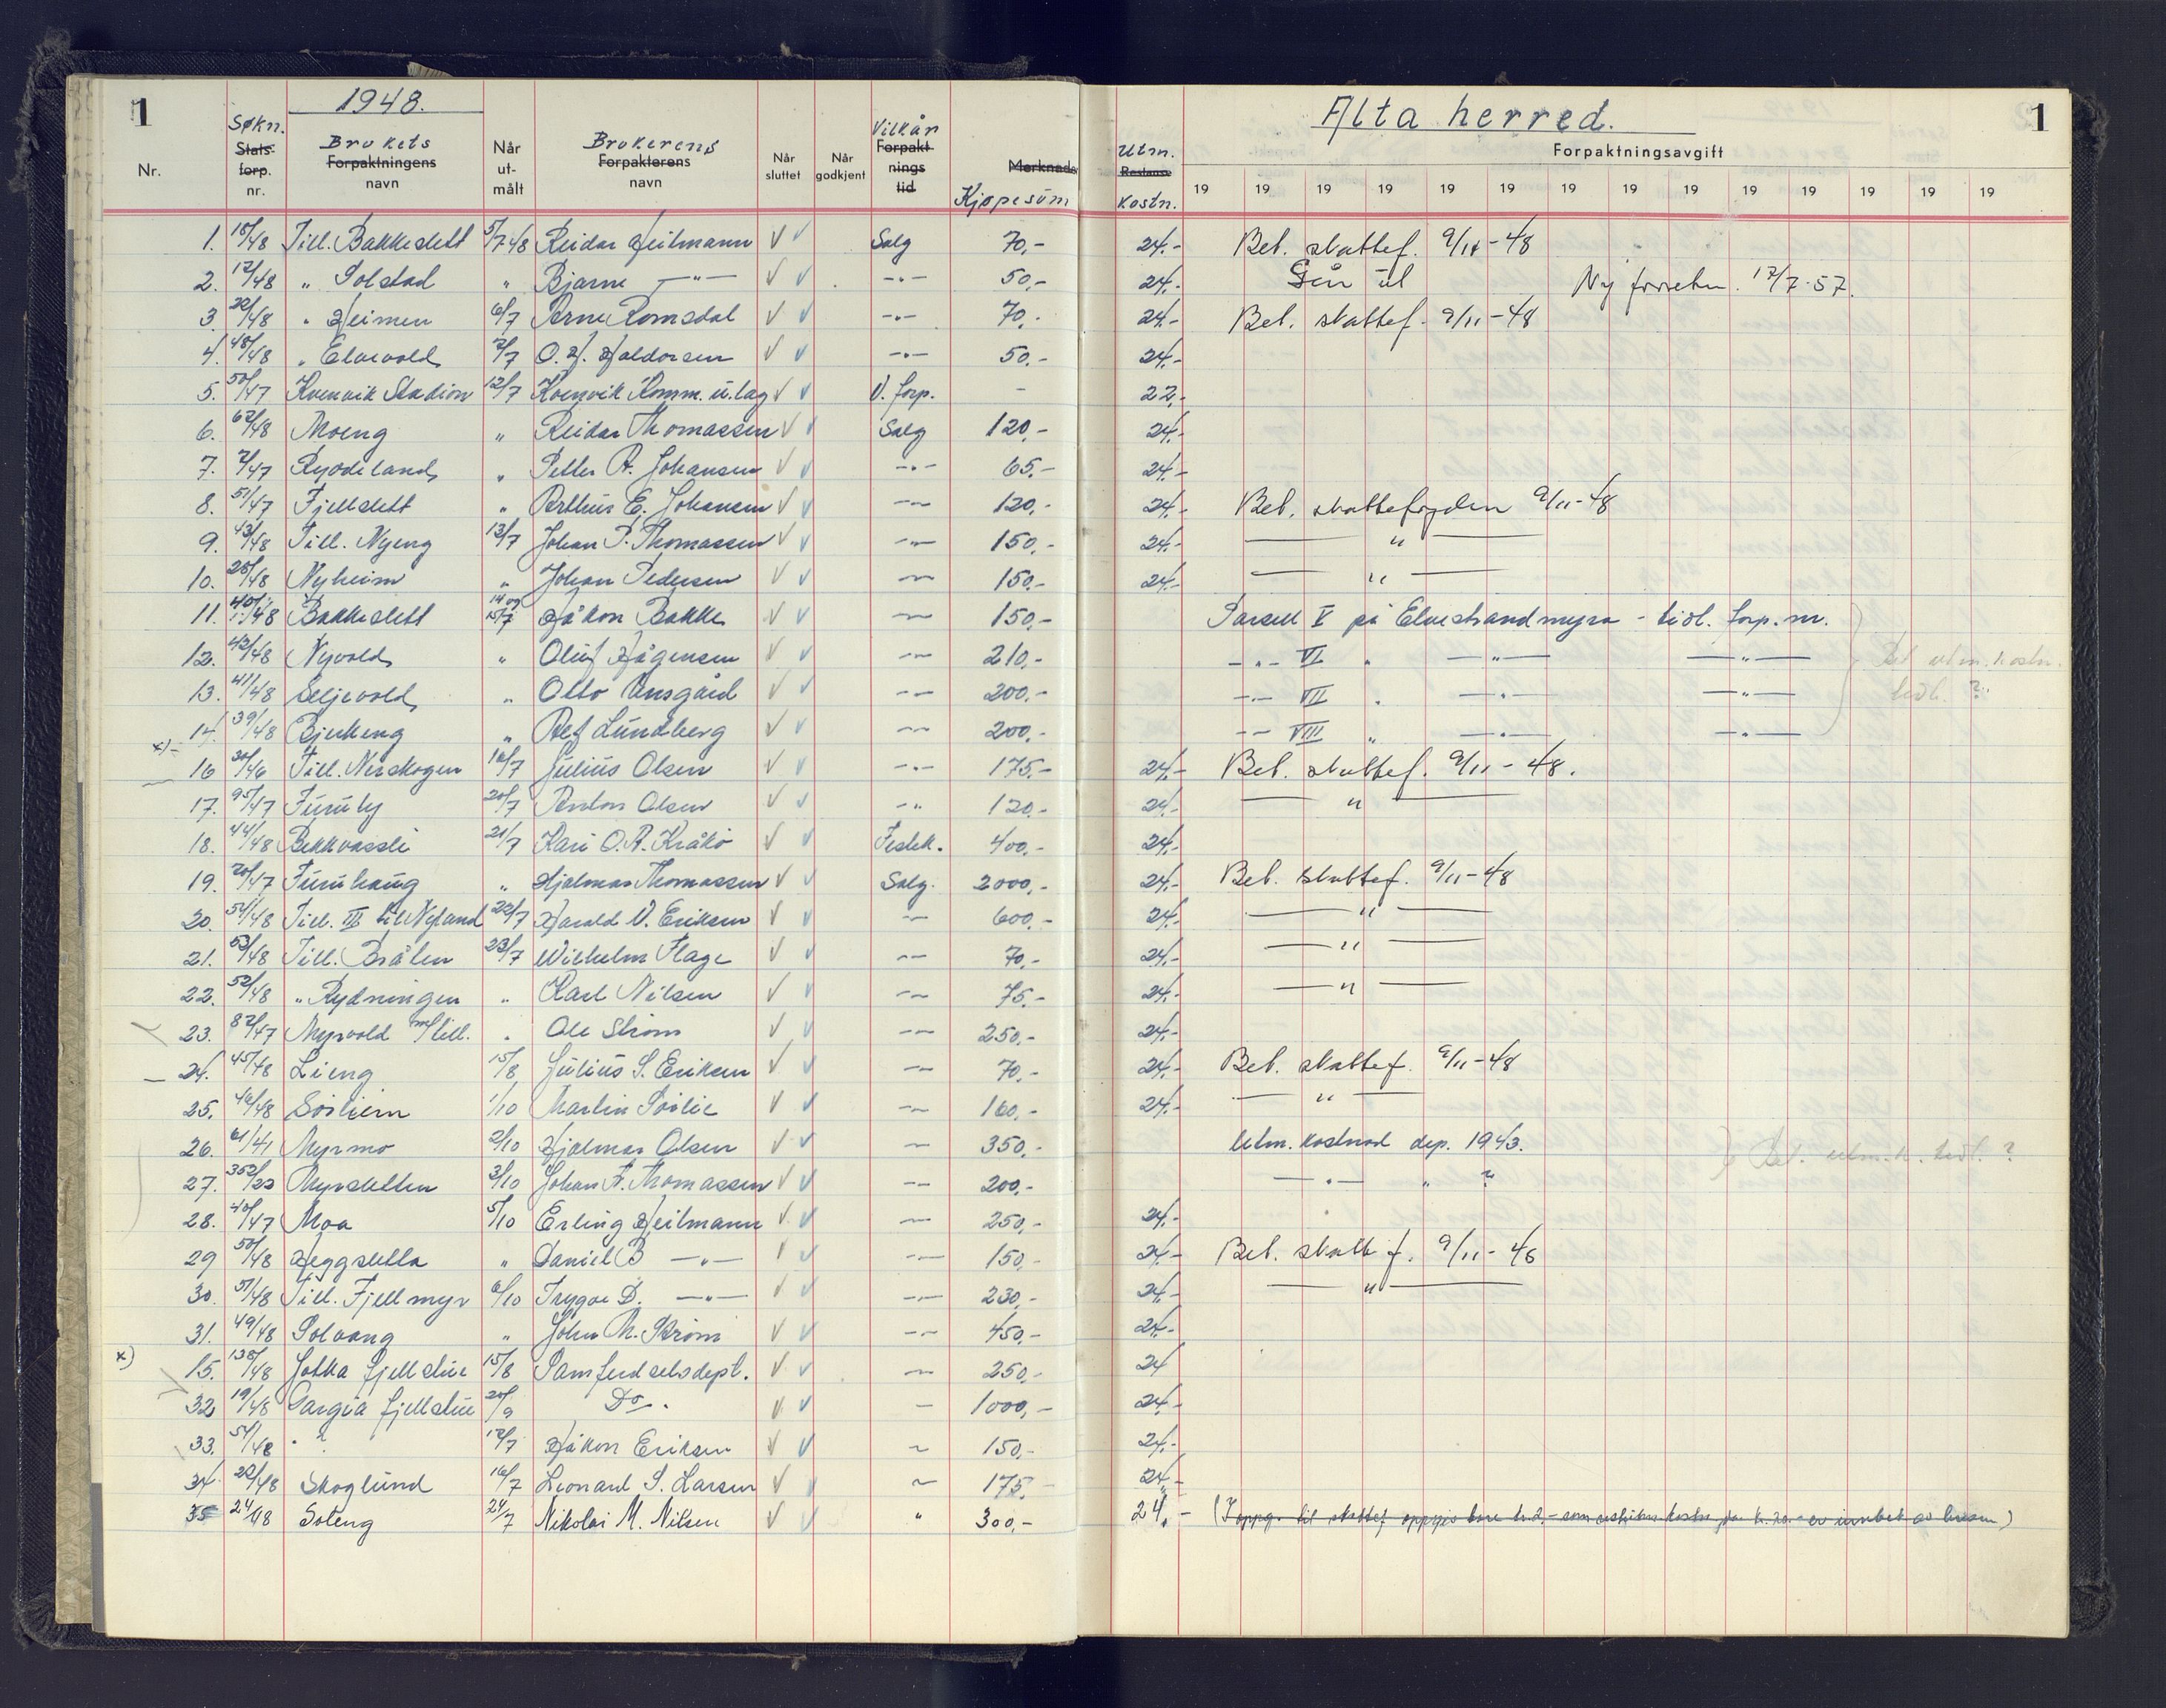 1 1948. Alta herred. 1
Nr. Søkn. Stats- forp. nr. Brukets Forpaktningens navn Når ut- målt Brukerens Forpakterens navn Når sluttet Når godkjent Vilkår Forpakt- nings tid Merknads Kjøpesum Utm. Restanse kostn. Forpaktningsavgift
19 19 19 19 19 19 19 19 19 19 19 19 19 19
1. 18/48 Till. Bakkeslett 5/7 48 Reidar Heitmann V V Salg 70,- 24.- Bet. skattef. 9/11-48
2. 12/48 " Solstad " Bjarne —"— V V —"— 50,- 24.- Går ut Ny forretn. 17/7-57.
3. 20/48 " Heimen 6/7 Arne Romsdal V V —"— 70,- 24.- Bet. skattef. 9/11-48
4. 48/48 " Elvevold 7/7 O. H. Haldorsen V V —"— 50.- 24.-
5. 50/47 Kvenvik Stadion 12/7 Kvenvik Komm. u.lag V V V. forp. - 22.-
6. 62/48 Moeng " Reidar Thomassen V V Salg 120,- 24.-
7. 7/47 Ryodeland " Petter A. Johansen V V —"— 65.- 24.-
8. 51/47 Fjellslett " Arthur E. Johansen V V —"— 120,- 24.- Bet. skattefogden 9/11-48
9. 43/48 Till. Nyeng 13/7 Johan P. Thomassen V V —"— 150,- 24.- — " —
10. 28/48 Nyheim " Johan Pedersen V V —"— 150.- 24.- — " —
11. 40/48 Bakkeslett 14 og 15/7 Håkon Bakke V V —"— 150,- Parsell V på Elvestrandmyra - tidl. forp. nr.
12. 42/48 Nyvold " Oluf Hågensen V V —"— 210,- —"— VI " —"— —"— Bet. utm. kostn.
13. 41/48 Seljevold " Otto Unsgård V V —"— 200.- —"— VII " —"— —"— tidl. ?
14. 39/48 Bjerkeng " Alf Lundberg V V —"— 200,- —"— VIII " —"— —"—
x)-
16 30/46 Till. Nerskogen 16/7 Julius Olsen V V —"— 175.- 24.- Bet. skattef. 9/11-48.
17. 95/47 Furuly 20/7 Anton Olsen V V —"— 120.- 24.- — " —
18. 44/48 Bekkvassli 21/7 Kari O. A. Kråkö V V Festek. 400.- 24.-
19. 20/47 Furuhaug " Hjalmar Thomassen V V Salg. 2000,- 24.- Bet. skattef. 9/11-48
20. 54/48 Till. III til Nyland 22/7 Harald V. Eriksen V V —"— 600.- 24.- — " —
21. 53/48 Till. Bråten 23/7 Wilhelm Flage V V —"— 70,- 24.- — " —
22. 52/48 " Rydningen " Karl Nilsen V V —"— 75.- 24.- — " —
23. 82/47 Myrvold m/till. " Ole Strøm V V —"— 250.- 24.-
24. 45/48 Lieng 15/8 Julius S. Eriksen V V —"— 70.- 24.- Bet. skattef. 9/11-48
25. 46/48 Soliem 1/10 Martin Solie V V —"— 160.- 24.- — " —
26. 61/41 Myrmo 2/10 Hjalmar Olsen V V —"— 350.- Utm. kostnad dep. 1943. Bet. utm.k. tidl. ?
27. 352/22 Myrsletten 3/10 Johan A. Thomassen V V —"— 200.- —"— " ?
28. 40/47 Moa 5/10 Erling Heitmann V V —"— 250,- 24.-
29 50/48 Heggsletta " Daniel B —"— V V —"— 150,- 24.- Bet. skattef. 9/11-48
30. 51/48 Till. Fjellmyr 6/10 Trygve D. —"— V V —"— 230,- 24.- — " —
31. 49/48 Solvang " John M. Strøm V V —"— 450,- 24.-
x) 15. 138/48 Jotka fjellstue 15/8 Samferdselsdept. V V —"— 250,- 24
32 19/48 Gargia fjellstue 20/9 Do. V V — 1000,- 24.-
33. 54/48 " ? 12/7 Håkon Eriksen V V —"— 150,- 24.-
34. 22/48 Skoglund 16/7 Leonard S. Larsen V V —"— 175.- 24.-
35 24/48 Soleng 24/7 Nikolai M. Nilsen V V " 300,- 24.- (I oppg. til skattef. oppgis bare kr. 2,- som er innbet av)